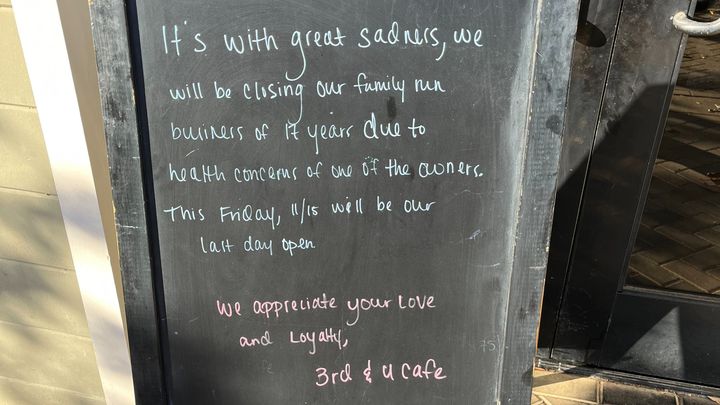 It's with great sadness, we
will be closing our family run
business of 17 years due to
health concerns of one of the owners.
This Friday, 11/15 will be our
last day open
We appreciate your Love
and Loyalty,
3rd & U Cafe